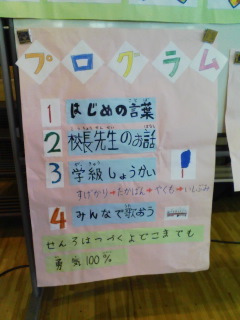 プログラム
1 はじめの言葉
2 校長先生のお話
3 学級しょうかい
すげかり→たかばん→やくも→いしぶみ
4 みんなで歌おう
せんろはつづくよどこまでも
勇気100%